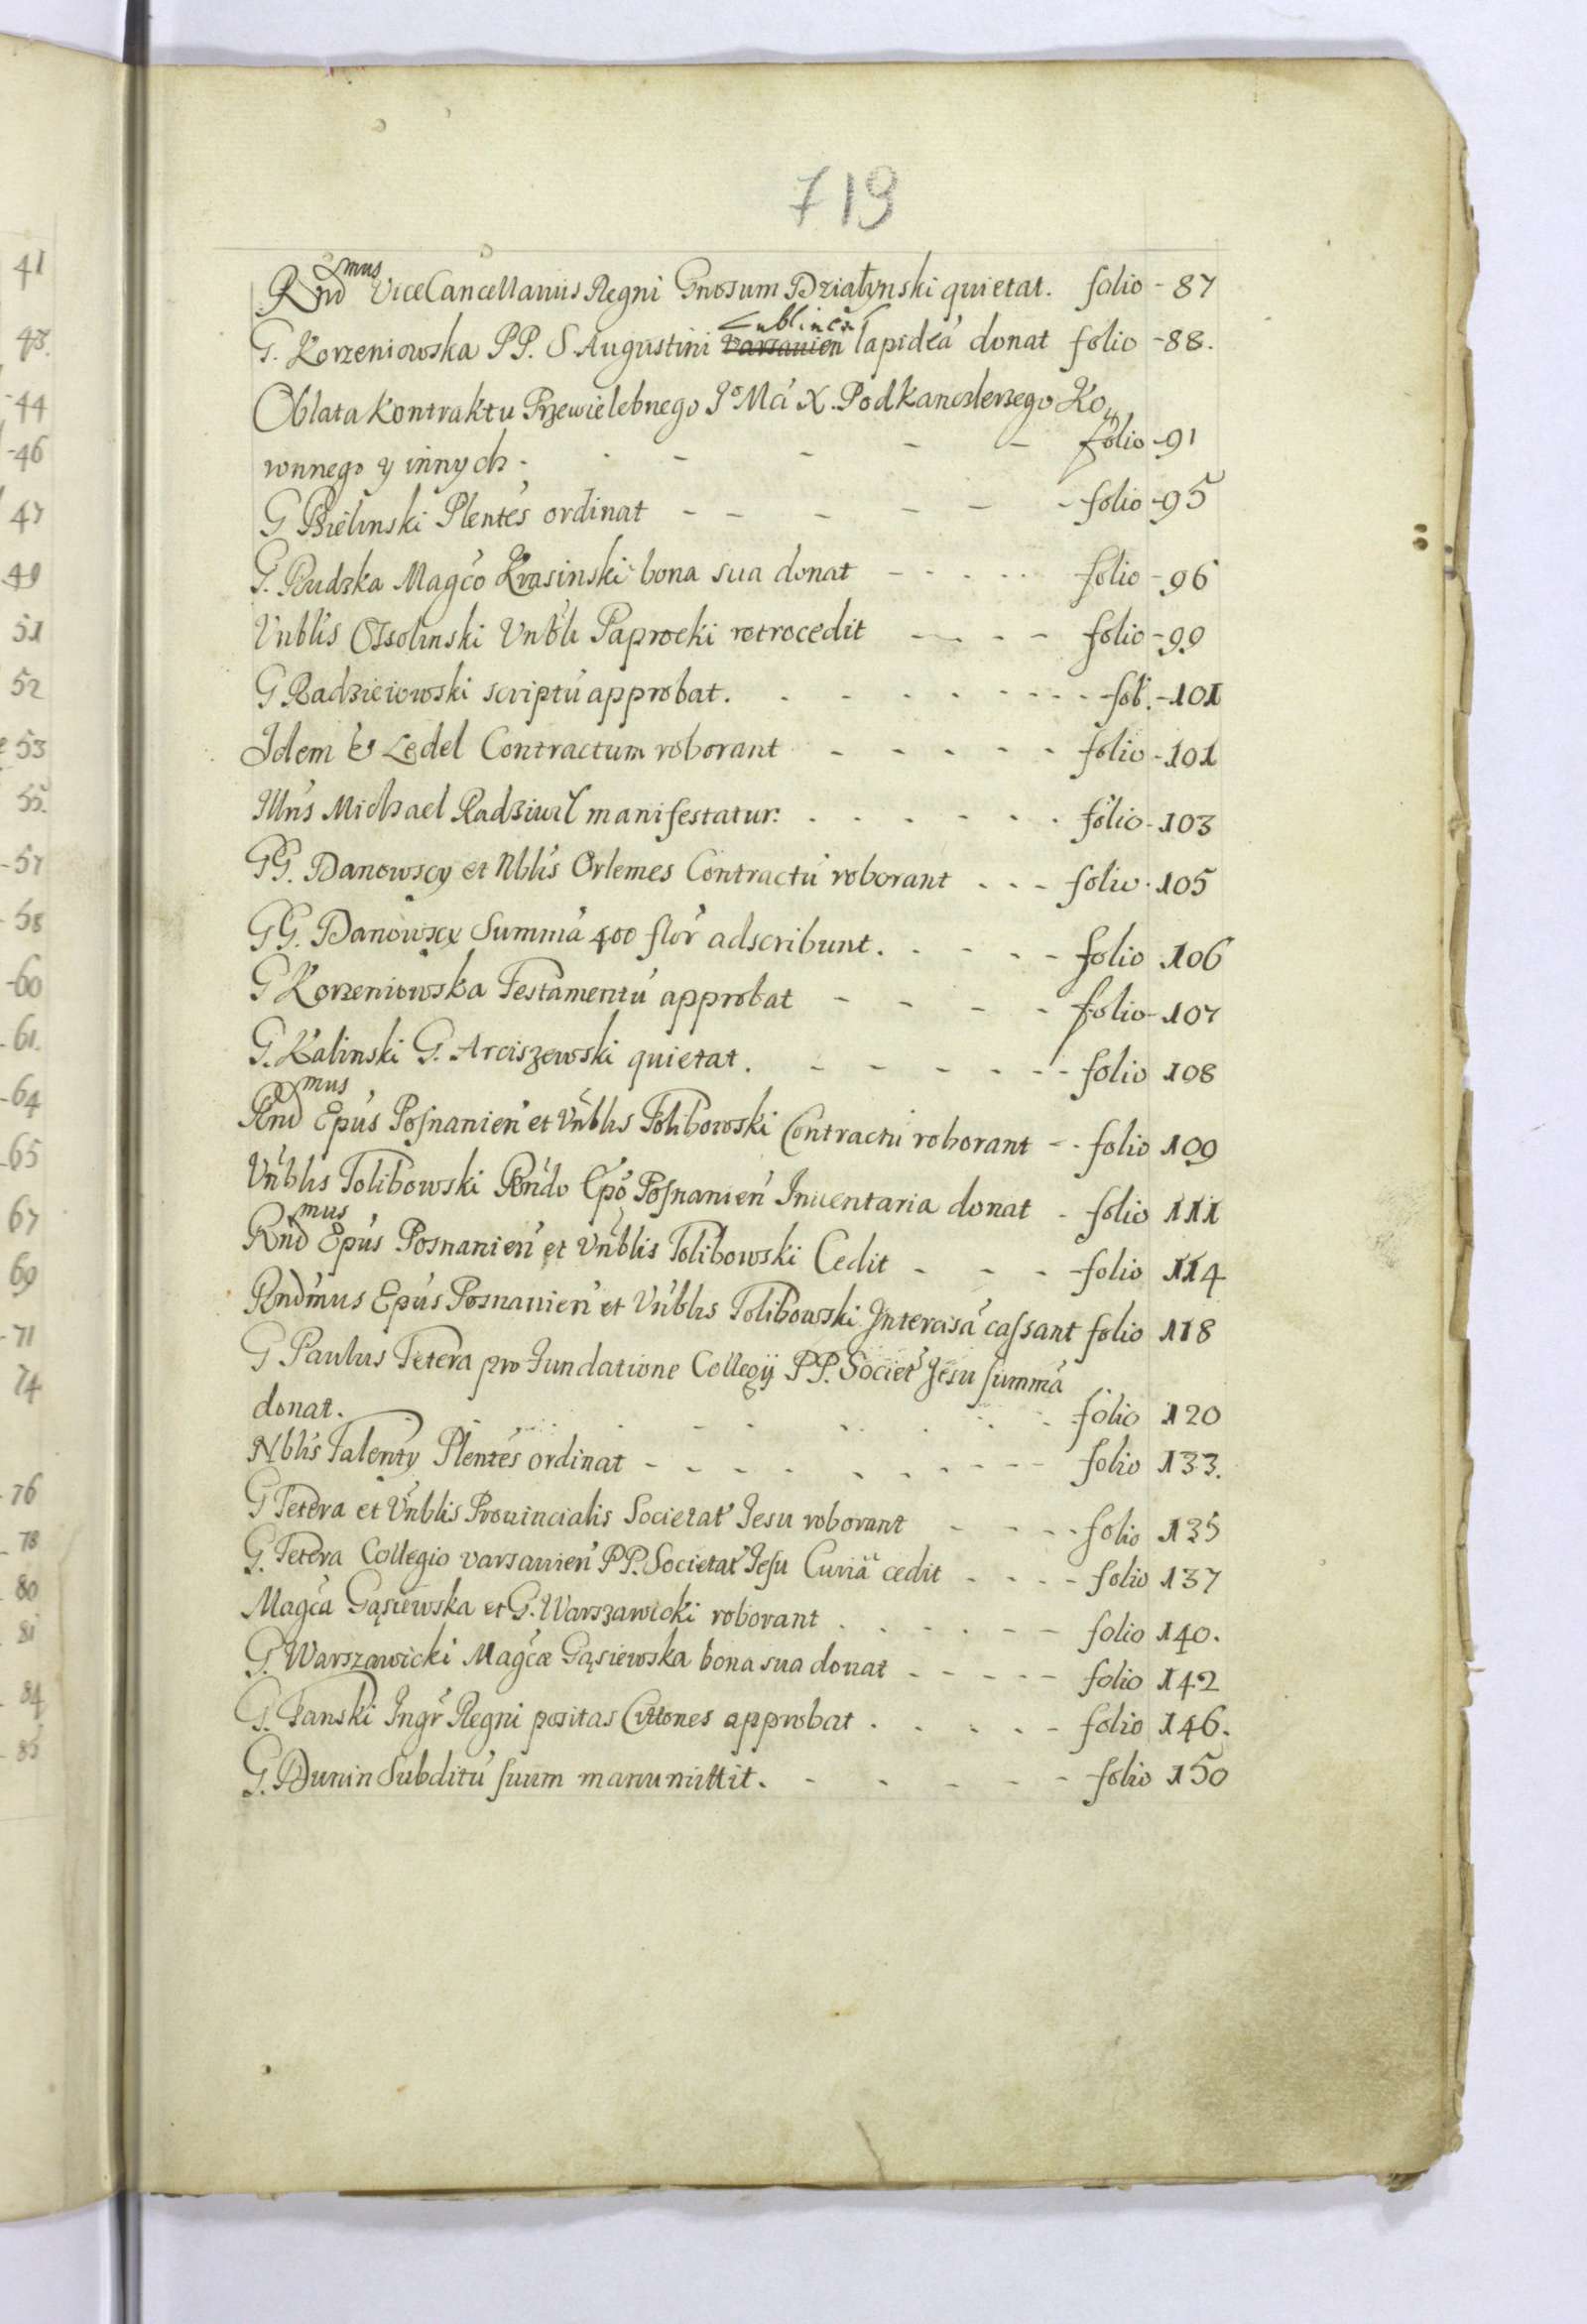 719
Rnd mus ViceCancellarius Regni Gnosum Działynski quietat. folio - 87
G. Korzeniowska PP. S. Augustini Varsavien Lublinen lapideá donat folio - 88.
Oblata Kontraktu Przewielebnego Jo Mci X. Podkanclerzego Ko,,
ronnego y innych - folio - 91
G Bielinski Plentes ordinat - folio - 95
G. Rudzka Magco Krasinski bona sua donat - folio - 96
Vnblis Ossolinski Vnbli Paprocki retrocedit - folio - 99
G Radzieiowski scriptú approbat. - fol. - 101
Idem & Ledel Contractum roborant - folio - 101
Illris Michael Radziwil manifestatur. folio - 103
GG. Danowscy et Nblis Orlemes Contractú roborant - folio - 105
GG. Danowscy Summá 400 flor adscribunt. folio 106
G Korzeniowska Testamentú approbat - folio - 107
G. Kalinski G. Arciszewski quietat. - folio 108
Rnd mus Epus Posnanien et Vnblis Tolibowski Contractú roborant - folio 109
Vnblis Tolibowski Rndo Epo Posnanien Inventaria donat - folio 111
Rnd mus Epus Posnanien et Vnblis Tolibowski Cedit - folio 114
Rndmus Epus Posnanien et Vnblis Tolibowski Intercisá cassant folio 118
G Paulus Tetera pro Fundatione Collegij PP. Societ Jesu summá
donat. folio 120
Nblis Talenty Plentes ordinat - folio 133.
G Tetera et Vnblis Provincialis Societat Jesu roborant - folio 135
G. Tetera Collegio varsavien PP. Societat Jesu Curiá cedit - folio 137
Magca Gąsiewska et G. Warszawicki roborant - folio 140.
G. Warszawicki Magcæ Gąsiewska bona sua donat - folio 142
G. Tanski Ingr Regni positas Cittones approbat - folio 146.
G. Dunin Subditú suum manumittit. - folio 150
41
43.
44
46
47
49
51
52
53
55.
57
58
60
61.
64
65
67
69
71
74
76
78
80
81
84
85